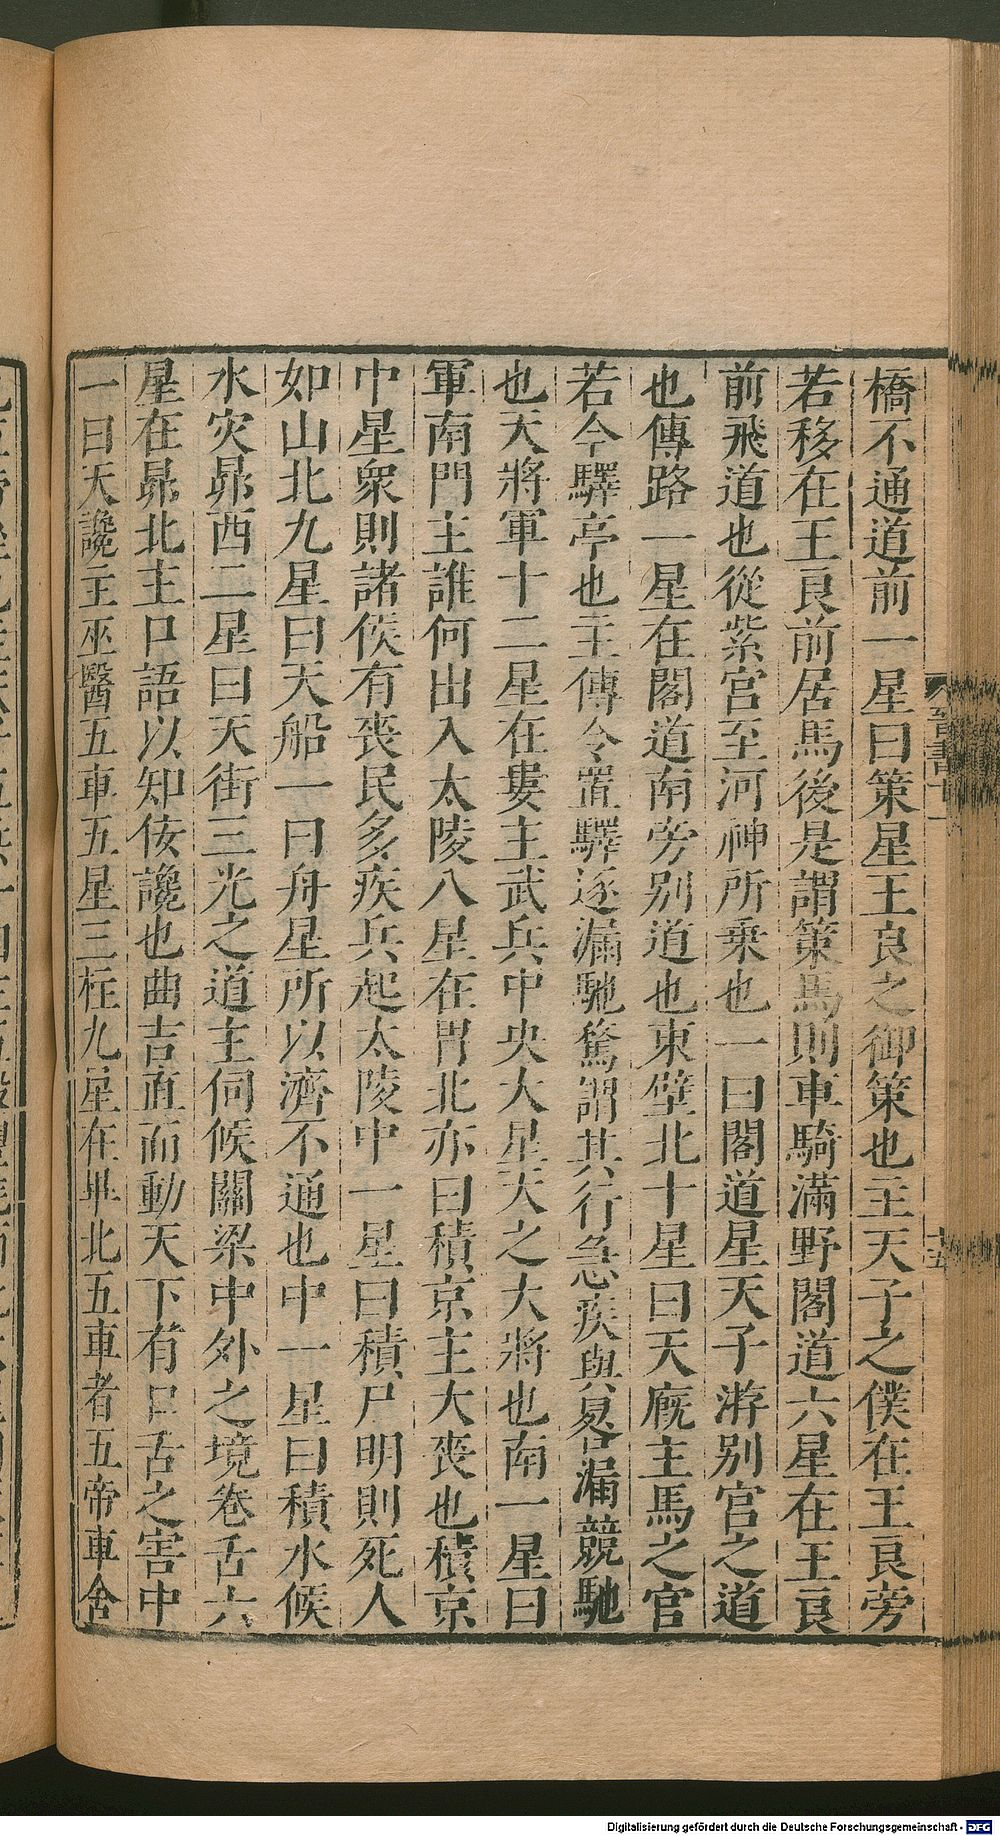 橋不通道前一星曰策星王良之御策也主天子之僕在王良旁
若移在王良前居馬後是謂策馬則車騎滿野閣道六星在王良
前飛道也從紫宮至河神所乘也一曰閣道星天子游別宮之道
也傳路一星在閣道南旁別道也東壁北十星曰天廐主馬之官
若今驛亭也主傳令置驛逐漏馳騖謂其行急疾與晷漏競馳
也天將軍十二星在婁主武兵中央大星天之大將也南一星曰
軍南門主誰何出入太陵八星在胃北亦曰積京主大喪也積京
中星衆則諸侯有喪民多疾兵起太陵中一星曰積尸明則死人
如山北九星曰天船一曰舟星所以濟不通也中一星曰積水候
水灾昴西二星曰天街三光之道主伺候關梁中外之境卷舌六
星在昴北主口語以知佞讒也曲吉直而動天下有口舌之害中
一曰天讒主巫醫五車五星三柱九星在畢北五車者五帝車舍
晉書十一
十五
Digitalisierung gefördert durch die Deutsche Forschungsgemeinschaft - DFG